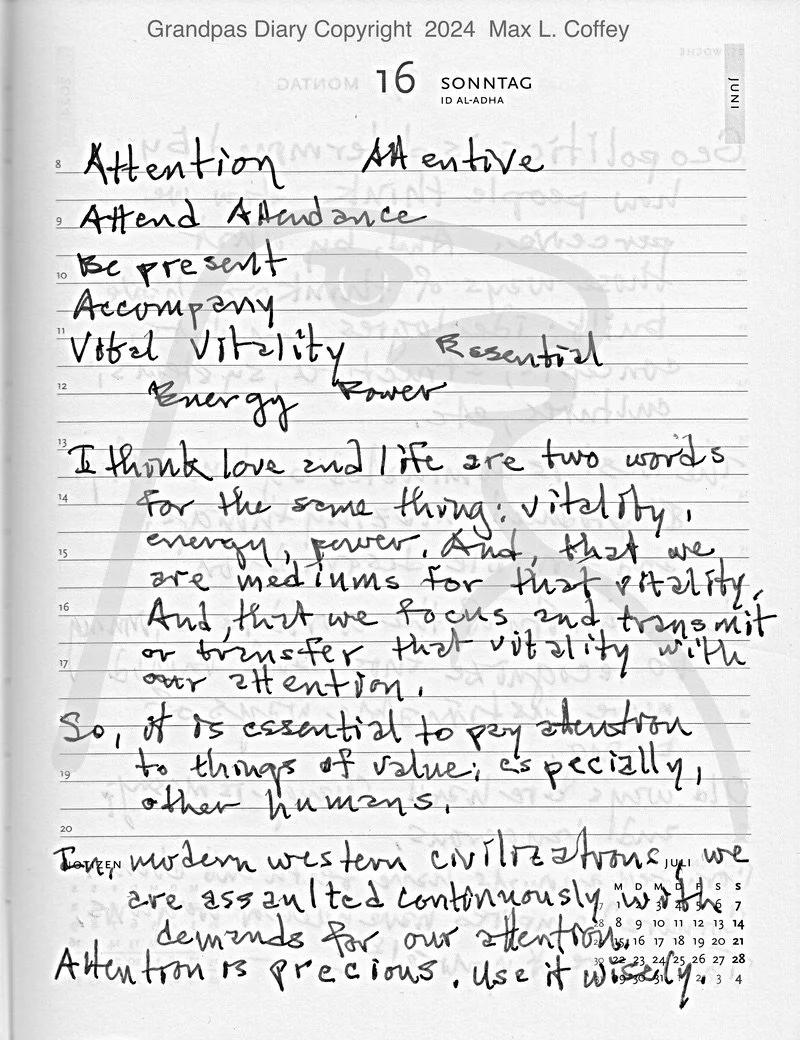 Grandpas Diary Copyright 2024 Max L. Coffey
16 SONNTAG
ID AL-ADHA
JUNI
8 Attention Attentive
9 Attend Attendance
Be present
10
Accompany
11
Vital Vitality Essential
12 Energy Power
13
I think love and life are two words
14 for the same thing: vitality,
energy, power. And, that we
15
are mediums for that vitality.
16 And, that we focus and transmit
or transfer that vitality with
17 our attention.
So, it is essential to pay attention
19 to things of value; especially,
other humans.
20
In, modern western civilizations, we
NOTIZEN JULI
are assaulted continuously with
M D M D F S S
demands for our attention.
8 9 10 11 12 13 14
15 16 17 18 19 20 21
Attention is precious. Use it wisely.
22 23 24 25 26 27 28
29 30 31 1 2 3 4